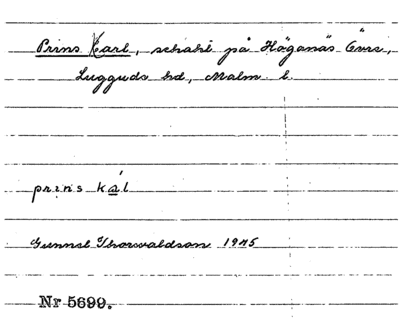 Prins Karl, schakt på Höganäs Övre,
Luggude hd, Malm l.
prins kál
Gunnel Thorwaldson 1945
Nr 5699.